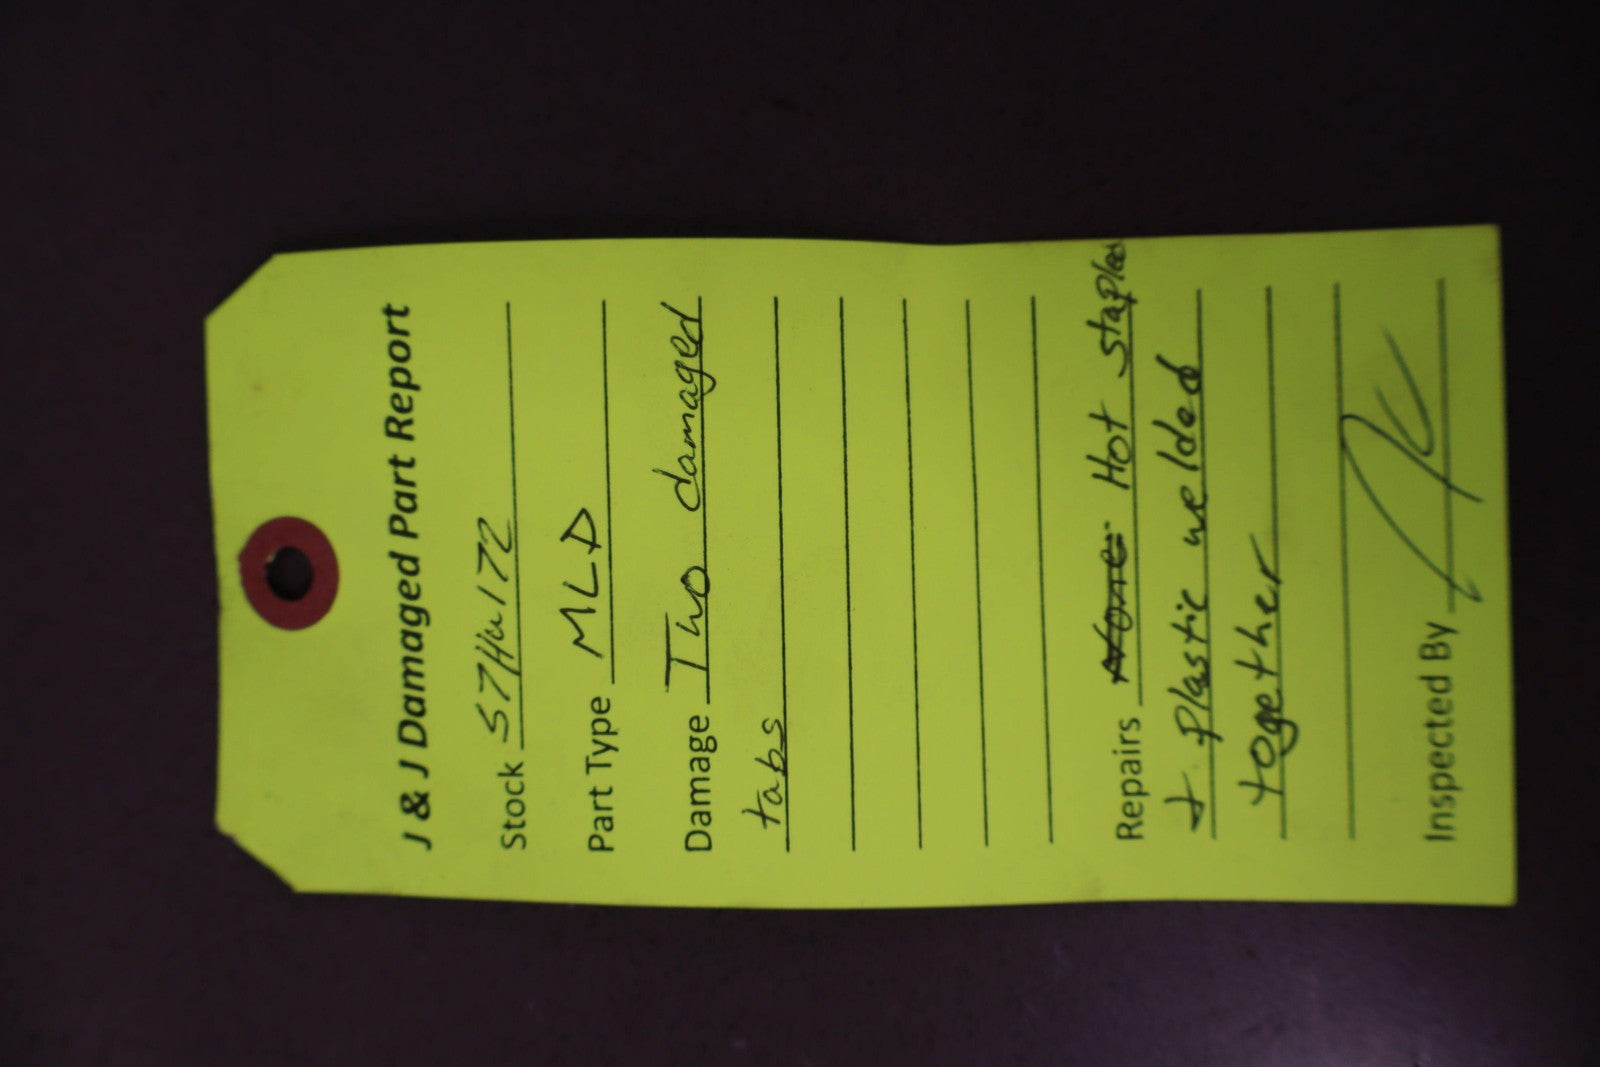 J & J Damaged Part Report
Stock S7Hu172
Part Type MLD
Damage Two damaged
tabs
Repairs None Hot staples
+ Plastic welded
together
Inspected By